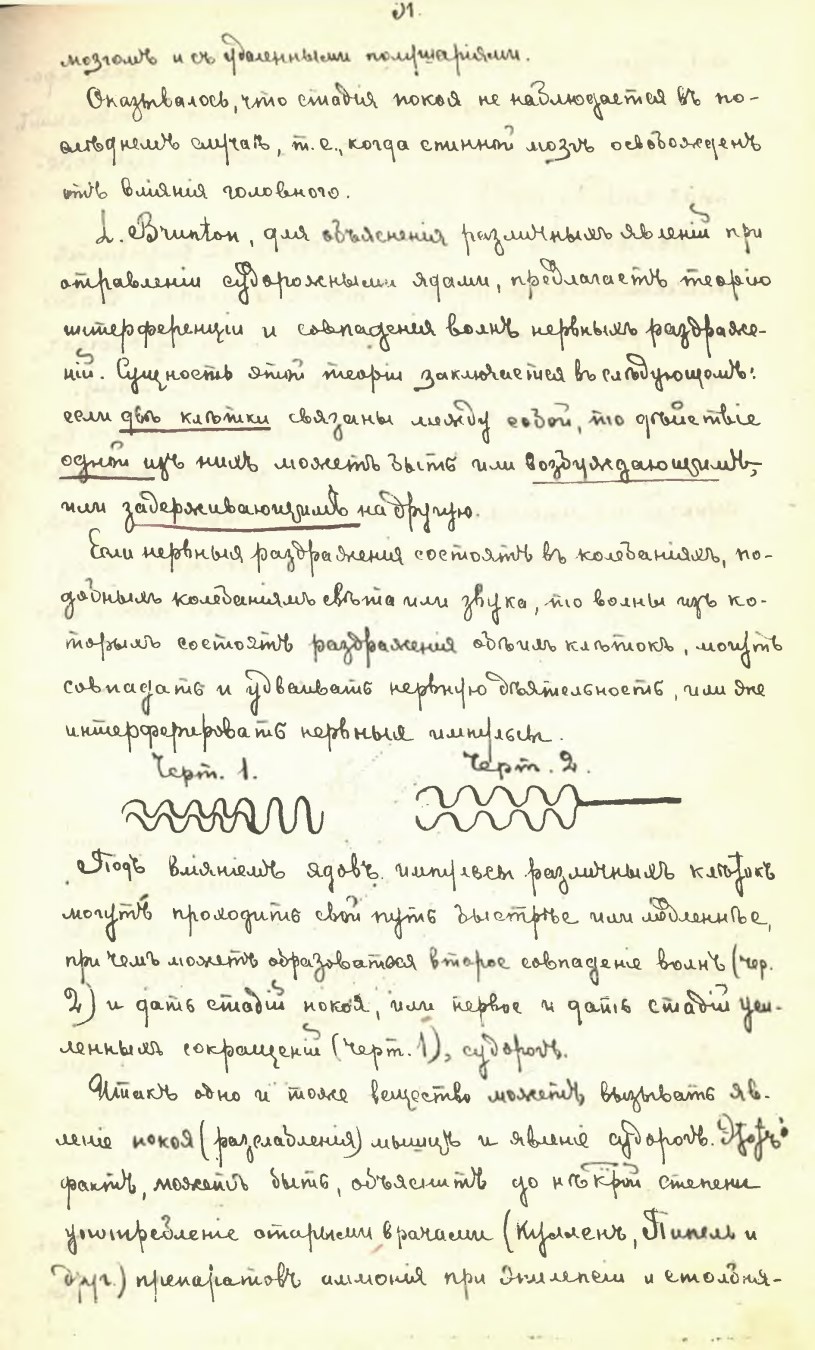 31.
мозгомъ и съ удаленными полушаріями.
Оказывалось, что стадія покоя не наблюдается въ по-
слѣднемъ случаѣ, т.е., когда спинной мозгъ освобожденъ
отъ вліянія головного.
L. Brunton, для объясненія различныхъ явленій при
отравленіи судорожными ядами, предлагаетъ теорію
интерференціи и совпаденія волнъ нервныхъ раздраже-
ній. Сущность этой теоріи заключается въ слѣдующемъ:
если двѣ клѣтки связаны между собой, то дѣйствіе
одной изъ нихъ можетъ быть или возбуждающимъ,
или задерживающимъ на другую.
Если нервныя раздраженія состоятъ въ колебаніяхъ, по-
добныхъ колебаніямъ свѣта или звука, то волны изъ ко-
торыхъ состоятъ раздраженія обѣихъ клѣтокъ, могутъ
совпадать и удваивать нервную дѣятельность, или же
интерферировать нервныя импульсы.
Черт. 1. Черт. 2.
Подъ вліяніемъ ядовъ импульсы различныхъ клѣтокъ
могутъ проходить свой путь быстрѣе или медленнѣе,
при чемъ можетъ образоваться второе совпаденіе волнъ (чер.
2) и дать стадій покоя, или первое и дать стадій уси-
ленныхъ сокращеній (черт. 1), судорогъ.
Итакъ одно и тоже вещество можетъ вызывать яв-
леніе покоя (разслабленія) мышцъ и явленіе судорогъ. Этотъ
фактъ, можетъ быть, объяснитъ до нѣкрой степени
употребленіе старыми врачами (Кулленъ, и
друг.) препаратовъ аммонія при эпилепсіи и столбня-